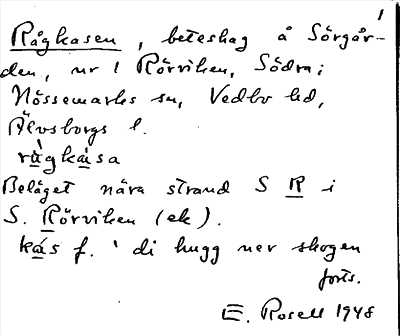 1
Rågkasen, beteshag å Sörgår-
den, nr 1 Rörviken, Södra;
Nössemarks sn, Vedbo hd,
Älvsborgs l.
rågkàsa
Beläget nära strand S R i
S. Rörviken (ek).
kás f. 'di hugg ner skogen
forts.
E. Rosell 1948